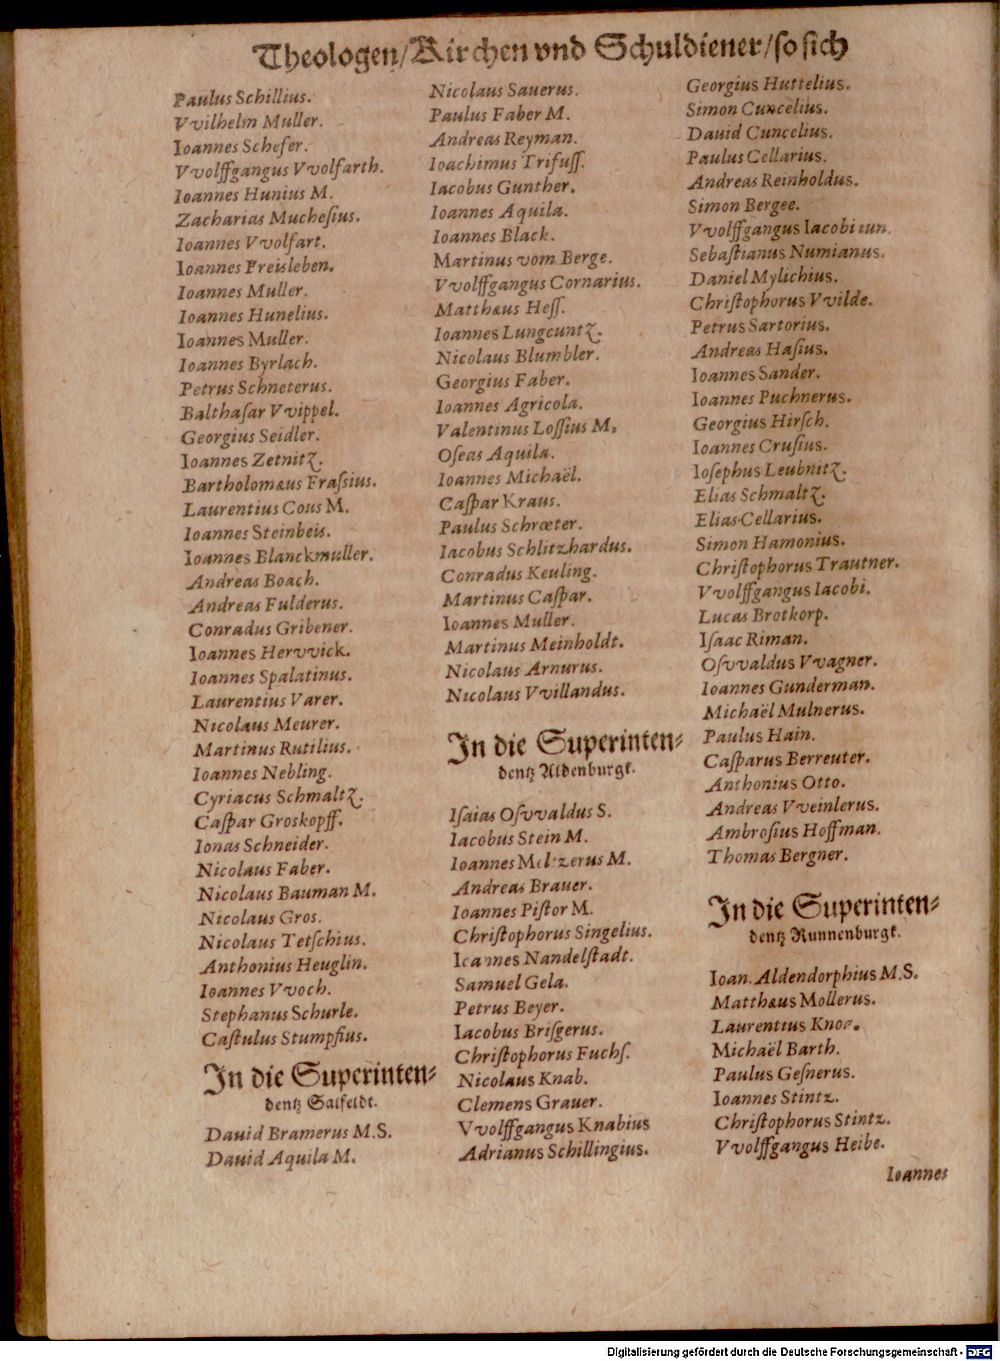 Theologen/Kirchen vnd Schuldiener/so sich
Paulus Schillius.
VVilhelm Muller.
Ioannes Schefer.
VVolffgangus VVolfarth.
Ioannes Hunius M.
Zacharias Mucheſius.
Ioannes VVolfart.
Ioannes Freisleben.
Ioannes Muller.
Ioannes Hunelius.
Ioannes Muller.
Ioannes Byrlach.
Petrus Schneterus.
Balthaſar VVippel.
Georgius Seidler.
Ioannes Zetnitz.
Bartholomæus Fraſsius.
Laurentius Cous M.
Ioannes Steinbeis.
Ioannes Blanckmuller.
Andreas Boach.
Andreas Fulderus.
Conradus Gribener.
Ioannes Hervvick.
Ioannes Spalatinus.
Laurentius Varer.
Nicolaus Meurer.
Martinus Rutilius.
Ioannes Nebling.
Cyriacus Schmaltz.
Caſpar Groskopff.
Ionas Schneider.
Nicolaus Faber.
Nicolaus Bauman M.
Nicolaus Gros.
Nicolaus Tetſchius.
Anthonius Heuglin.
Ioannes VVoch.
Stephanus Schurle.
Caſtulus Stumpfius.
In die Superinten⸗
dentz Salfeldt.
Dauid Bramerus M.S.
Dauid Aquila M.
Nicolaus Sauerus.
Paulus Faber M.
Andreas Reyman.
Ioachimus Trifuſſ.
Iacobus Gunther.
Ioannes Aquila.
Ioannes Black.
Martinus vom Berge.
VVolffgangus Cornarius.
Matthæus Heſſ.
Ioannes Lungcuntz.
Nicolaus Blumbler.
Georgius Faber.
Ioannes Agricola.
Valentinus Loſſius M.
Oſeas Aquila.
Ioannes Michaël.
Caſpar Kraus.
Paulus Schrœter.
Iacobus Schlitzhardus.
Conradus Keuling.
Martinus Caſpar.
Ioannes Muller.
Martinus Meinholdt.
Nicolaus Arnurus.
Nicolaus VVillandus.
In die Superinten⸗
dentz Aldenburgk.
Iſaias Oſvvaldus S.
Iacobus Stein M.
Ioannes Meltzerus M.
Andreas Brauer.
Ioannes Piſtor M.
Chriſtophorus Singelius.
Ioannes Nandelſtadt.
Samuel Gela.
Petrus Beyer.
Iacobus Briſgerus.
Chriſtophorus Fuchſ.
Nicolaus Knab.
Clemens Grauer.
VVolffgangus Knabius
Adrianus Schillingius.
Georgius Huttelius.
Simon Cuncelius.
Dauid Cuncelius.
Paulus Cellarius.
Andreas Reinholdus.
Simon Bergee.
VVolffgangus Iacobi iun.
Sebaſtianus Numianus.
Daniel Mylichius.
Chriſtophorus VVilde.
Petrus Sartorius.
Andreas Haſius.
Ioannes Sander.
Ioannes Puchnerus.
Georgius Hirſch.
Ioannes Cruſius.
Ioſephus Leubnitz.
Elias Schmaltz.
Elias Cellarius.
Simon Hamonius.
Chriſtophorus Trautner.
VVolffgangus Iacobi.
Lucas Brotkorp.
Iſaac Riman.
Oſvvaldus VVagner.
Ioannes Gunderman.
Michaël Mulnerus.
Paulus Hain.
Caſparus Berreuter.
Anthonius Otto.
Andreas VVeinlerus.
Ambroſius Hoffman.
Thomas Bergner.
In die Superinten⸗
dentz Runnenburgk.
Ioan. Aldendorphius M.S.
Matthæus Mollerus.
Laurentius
Michaël Barth.
Paulus Geſnerus.
Ioannes Stintz.
Chriſtophorus Stintz.
VVolffgangus Heibe.
Ioannes
Digitalisierung gefördert durch die Deutsche Forschungsgemeinschaft - DFG